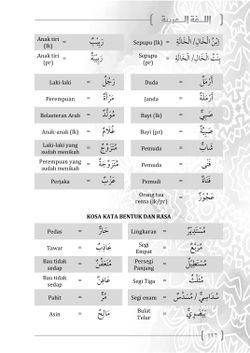 اللغة العربية
Anak tiri (lk) = رَبِيْبٌ Sepupu (lk) = اِبْنُ الْخَالِ/ الْخَالَةِ
Anak tiri (pr) = رَبِيْبَةٌ Sepupu (pr) = بِنْتُ الْخَالِ/ الْخَالَةِ
Laki-laki = رَجُلٌ Duda = أَرْمَلُ
Perempuan = مَرْأَةٌ Janda = أَرْمَلَةٌ
Belasteran Arab = مُوَلَّدٌ Bayi (lk) = صَبِيٌّ
Anak-anak (lk) = غُلَامٌ Bayi (pr) = صَبِيَّةٌ
Laki-laki yang sudah menikah = مُتَزَوِّجٌ Pemuda = شَابٌّ
Perempuan yang sudah menikah = مُتَزَوِّجَةٌ Pemuda = فَتًى
Perjaka = عَزَبٌ Pemudi = فَتَاةٌ
Orang tua rensa (lk/pr) = عَجُوْزٌ
KOSA KATA BENTUK DAN RASA
Pedas = حَارٌّ Lingkaran = مُسْتَدِيْرٌ
Tawar = عَاذِبٌ Segi Empat = مُرَبَّعٌ
Bau tidak sedap = مُتَعَفِّنٌ Persegi Panjang = مُسْتَطِيْلٌ
Bau tidak sedap = عَافِنٌ Segi Tiga = مُثَلَّثٌ
Pahit = مُرٌّ Segi enam = سُدَاسِيٌّ / مُسَدَّسٌ
Asin = مَالِحٌ Bulat Telur = بَيْضَوِيٌّ